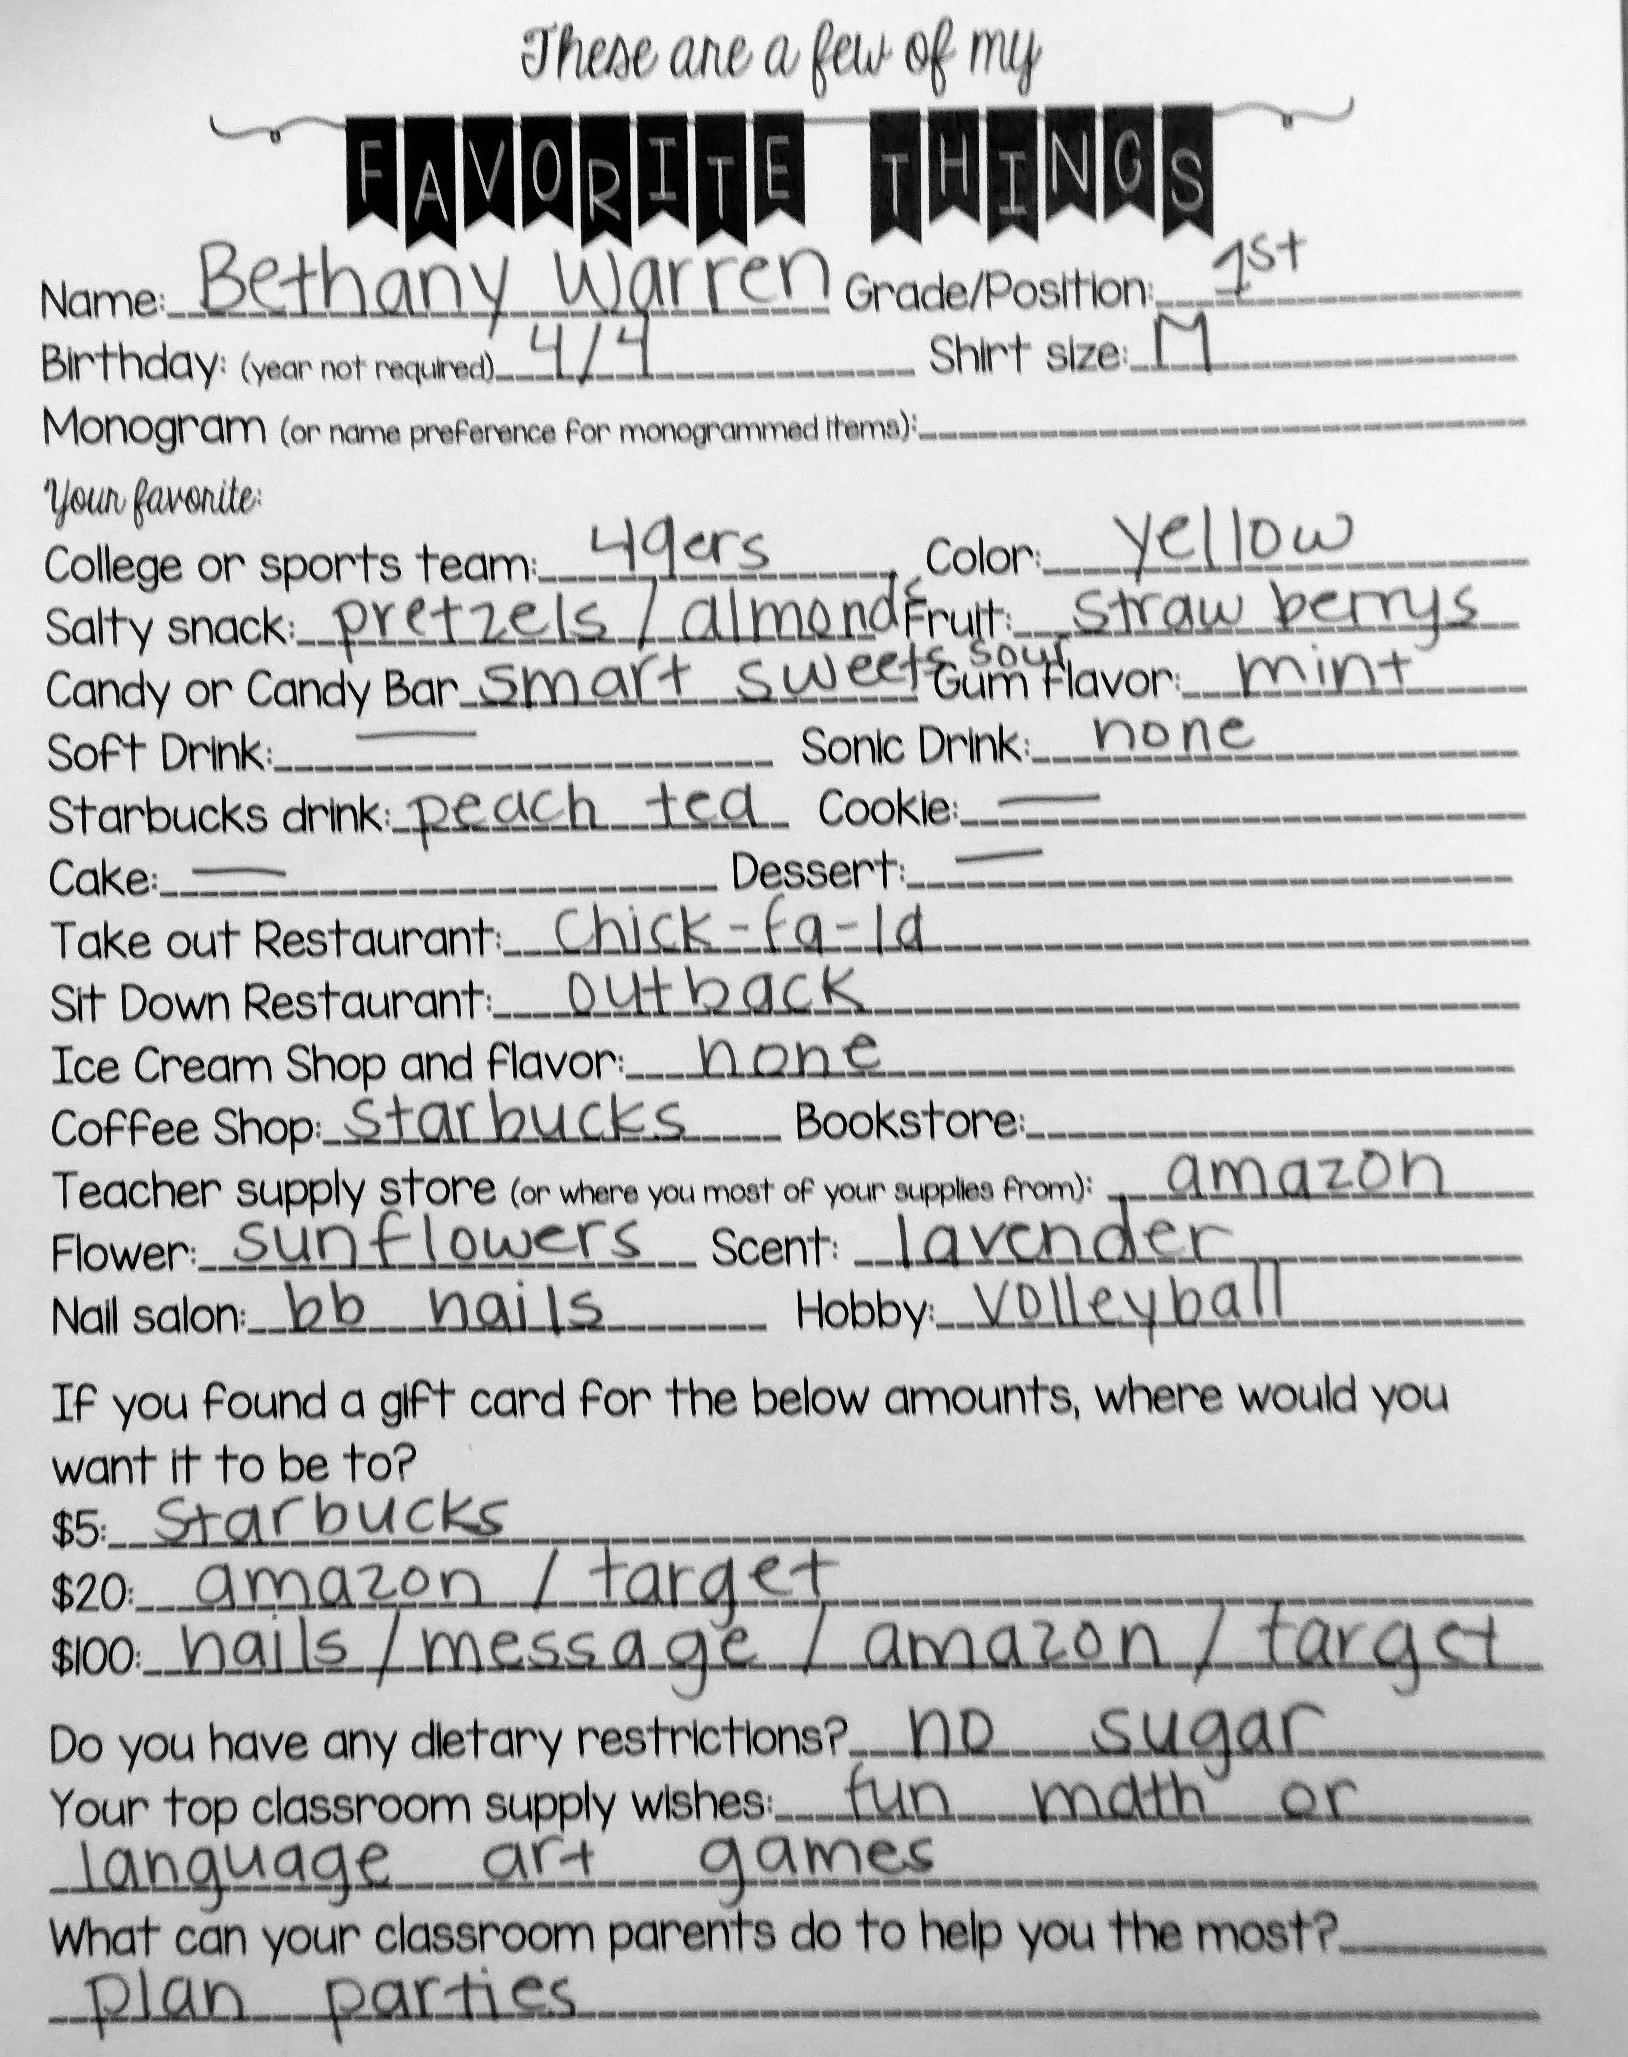 These are a few of my
FAVORITE THINGS
Name: Bethany Warren Grade/Position: 1st
Birthday: (year not required) 4/4 Shirt size: M
Monogram (or name preference for monogrammed items):
Your favorite:
College or sports team: 49ers Color: yellow
Salty snack: pretzels / almonds Fruit: straw berrys
Candy or Candy Bar smart sweets sour Gum Flavor: mint
Soft Drink: — Sonic Drink: none
Starbucks drink: peach tea Cookie: —
Cake: — Dessert: —
Take out Restaurant: Chick-fa-la
Sit Down Restaurant: outback
Ice Cream Shop and flavor: none
Coffee Shop: starbucks Bookstore:
Teacher supply store (or where you most of your supplies from): amazon
Flower: sunflowers Scent: lavender
Nail salon: bb nails Hobby: volleyball
If you found a gift card for the below amounts, where would you
want it to be to?
$5: Starbucks
$20: amazon / target
$100: nails / message / amazon / target
Do you have any dietary restrictions? no sugar
Your top classroom supply wishes: fun math or
language art games
What can your classroom parents do to help you the most?
plan parties